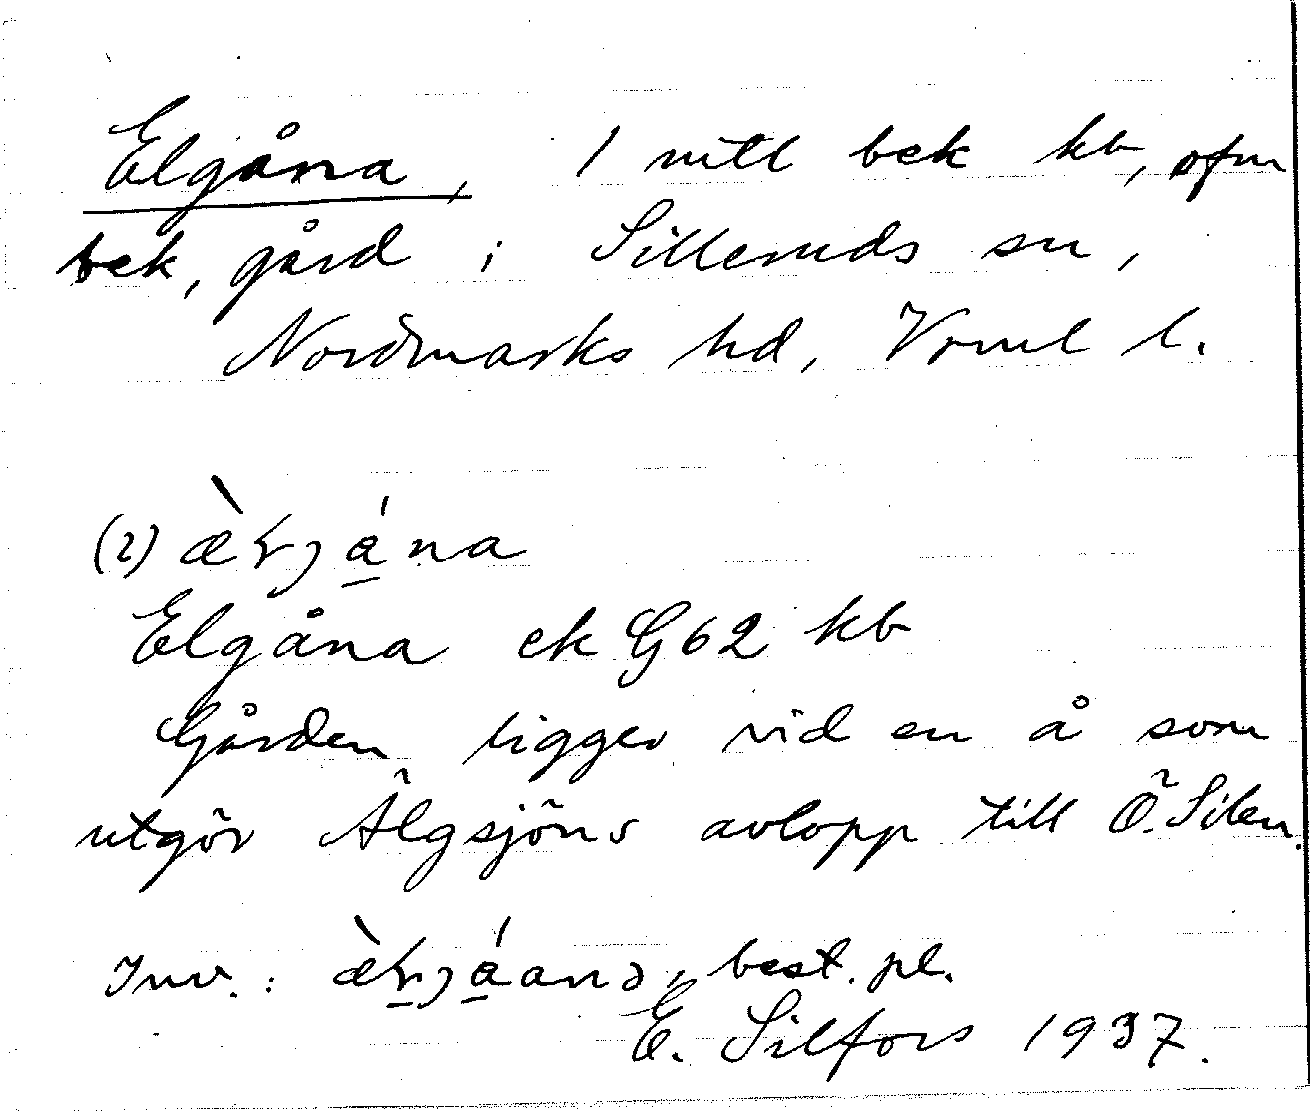 Elgåna, 1 mtl bek kb, ofm
bek, gård i Silleruds sn,
Nordmarks hd, Vrml l.
(2) æ̀ɽjá̱na
Elgåna ek G62 kb
Gården ligger vid en å som
utgör Älgsjöns avlopp till Ö. Silen.
Inv.: æ̀ɽjá̱anə, best. pl.
E. Silfors 1937.